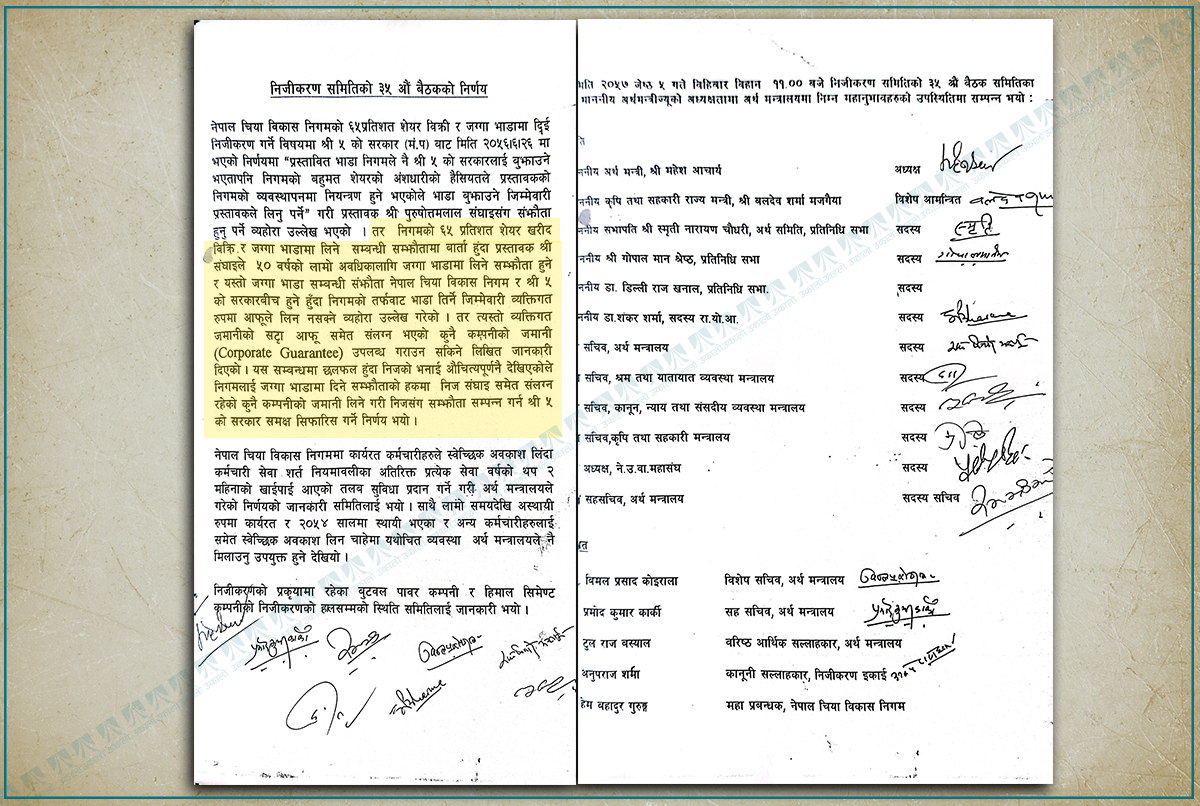 निजीकरण समितिको ३५ औं बैठकको निर्णय
नेपाल चिया विकास निगमको ६५प्रतिशत शेयर विक्री र जग्गा भाडामा दिई
निजीकरण गर्ने विषयमा श्री ५ को सरकार (मं.प) बाट मिति २०५६।६।२६ मा
भएको निर्णयमा "प्रस्तावित भाडा निगमले नै श्री ५ को सरकारलाई वुझाउने
भएतापनि निगमको बहुमत शेयरको अंशधारीको हैसियतले प्रस्तावकको
निगमको व्यवस्थापनमा नियन्त्रण हुने भएकोले भाडा वुझाउने जिम्मेवारी
प्रस्तावकले लिनु पर्ने" गरी प्रस्तावक श्री पुरुषोत्तमलाल संघाइसंग संझौता
हनु पर्ने व्यहोरा उल्लेख भएको । तर निगमको ६५ प्रतिशत शेयर खरीद
विक्रि र जग्गा भाडामा लिने सम्बन्धी सम्झौतामा वार्ता हुंदा प्रस्तावक श्री
संघाइले ५० वर्षको लामो अवधिकालागि जग्गा भाडामा लिने सम्झौता हुने
र यस्तो जग्गा भाडा सम्बन्धी संझौता नेपाल चिया विकास निगम र श्री ५
को सरकारबीच हुने हुँदा निगमको तर्फवाट भाडा तिर्ने जिम्मेवारी व्यक्तिगत
रुपमा आफूले लिन नसक्ने व्यहोरा उल्लेख गरेको । तर त्यस्तो व्यक्तिगत
जमानीको सट्टा आफू समेत संलग्न भएको कुनै कम्पनीको जमानी
(Corporate Guarantee) उपलब्ध गराउन सकिने लिखित जानकारी
दिएको । यस सम्बन्धमा छलफल हुंदा निजको भनाई औचित्यपूर्णनै देखिएकोले
निगमलाई जग्गा भाडामा दिने सम्झौताको हकमा निज संघाइ समेत संलग्न
रहेको कुनै कम्पनीको जमानी लिने गरी निजसंग सम्झौता सम्पन्न गर्न श्री ५
को सरकार समक्ष सिफारिस गर्ने निर्णय भयो ।
नेपाल चिया विकास निगममा कार्यरत कर्मचारीहरुले स्वेच्छिक अवकाश लिंदा
कर्मचारी सेवा शर्त नियमावलीका अतिरिक्त प्रत्येक सेवा वर्षको थप २
महिनाको खाईपाई आएको तलव सुविधा प्रदान गर्ने गरी अर्थ मन्त्रालयले
गरेको निर्णयको जानकारी समितिलाई भयो । साथै लामो समयदेखि अस्थायी
रुपमा कार्यरत र २०५४ सालमा स्थायी भएका र अन्य कर्मचारीहरुलाई
समेत स्वेच्छिक अवकाश लिन चाहेमा यथोचित व्यवस्था अर्थ मन्त्रालयले नै
मिलाउनु उपयुक्त हुने देखियो ।
निजीकरणको प्रकृयामा रहेका वुटवल पावर कम्पनी र हिमाल सिमेण्ट
कम्पनीको निजीकरणको हालसम्मको स्थिति समितिलाई जानकारी भयो ।
मिति २०५७ जेष्ठ ५ गते विहिवार विहान ११.०० बजे निजीकरण समितिको ३५ औं बैठक समितिका
माननीय अर्थमन्त्रीज्यूको अध्यक्षतामा अर्थ मन्त्रालयमा निम्न महानुभावहरुको उपस्थितिमा सम्पन्न भयो :
ननीय अर्थ मन्त्री, श्री महेश आचार्य अध्यक्ष
ननीय कृषि तथा सहकारी राज्य मन्त्री, श्री बलदेव शर्मा मजगैया विशेष आमन्त्रित
ननीय सभापति श्री स्मृती नारायण चौधरी, अर्थ समिति, प्रतिनिधि सभा सदस्य
ननीय श्री गोपाल मान श्रेष्ठ, प्रतिनिधि सभा सदस्य
ननीय डा. डिल्ली राज खनाल, प्रतिनिधि सभा. सदस्य
ननीय डा.शंकर शर्मा, सदस्य रा.यो.आ. सदस्य
सचिव, अर्थ मन्त्रालय सदस्य
सचिव, श्रम तथा यातायात व्यवस्था मन्त्रालय सदस्य
सचिव, कानून, न्याय तथा संसदीय व्यवस्था मन्त्रालय सदस्य
सचिव,कृषि तथा सहकारी मन्त्रालय सदस्य
अध्यक्ष, ने.उ.वा.महासंघ सदस्य
सहसचिव, अर्थ मन्त्रालय सदस्य सचिव
विमल प्रसाद कोइराला विशेष सचिव, अर्थ मन्त्रालय
प्रमोद कुमार कार्की सह सचिव, अर्थ मन्त्रालय
टुल राज वस्याल वरिष्ठ आर्थिक सल्लाहकार, अर्थ मन्त्रालय
अनुपराज शर्मा कानूनी सल्लाहकार, निजीकरण इकाई
हेम वहादुर गुरुङ्ग महा प्रवन्धक, नेपाल चिया विकास निगम